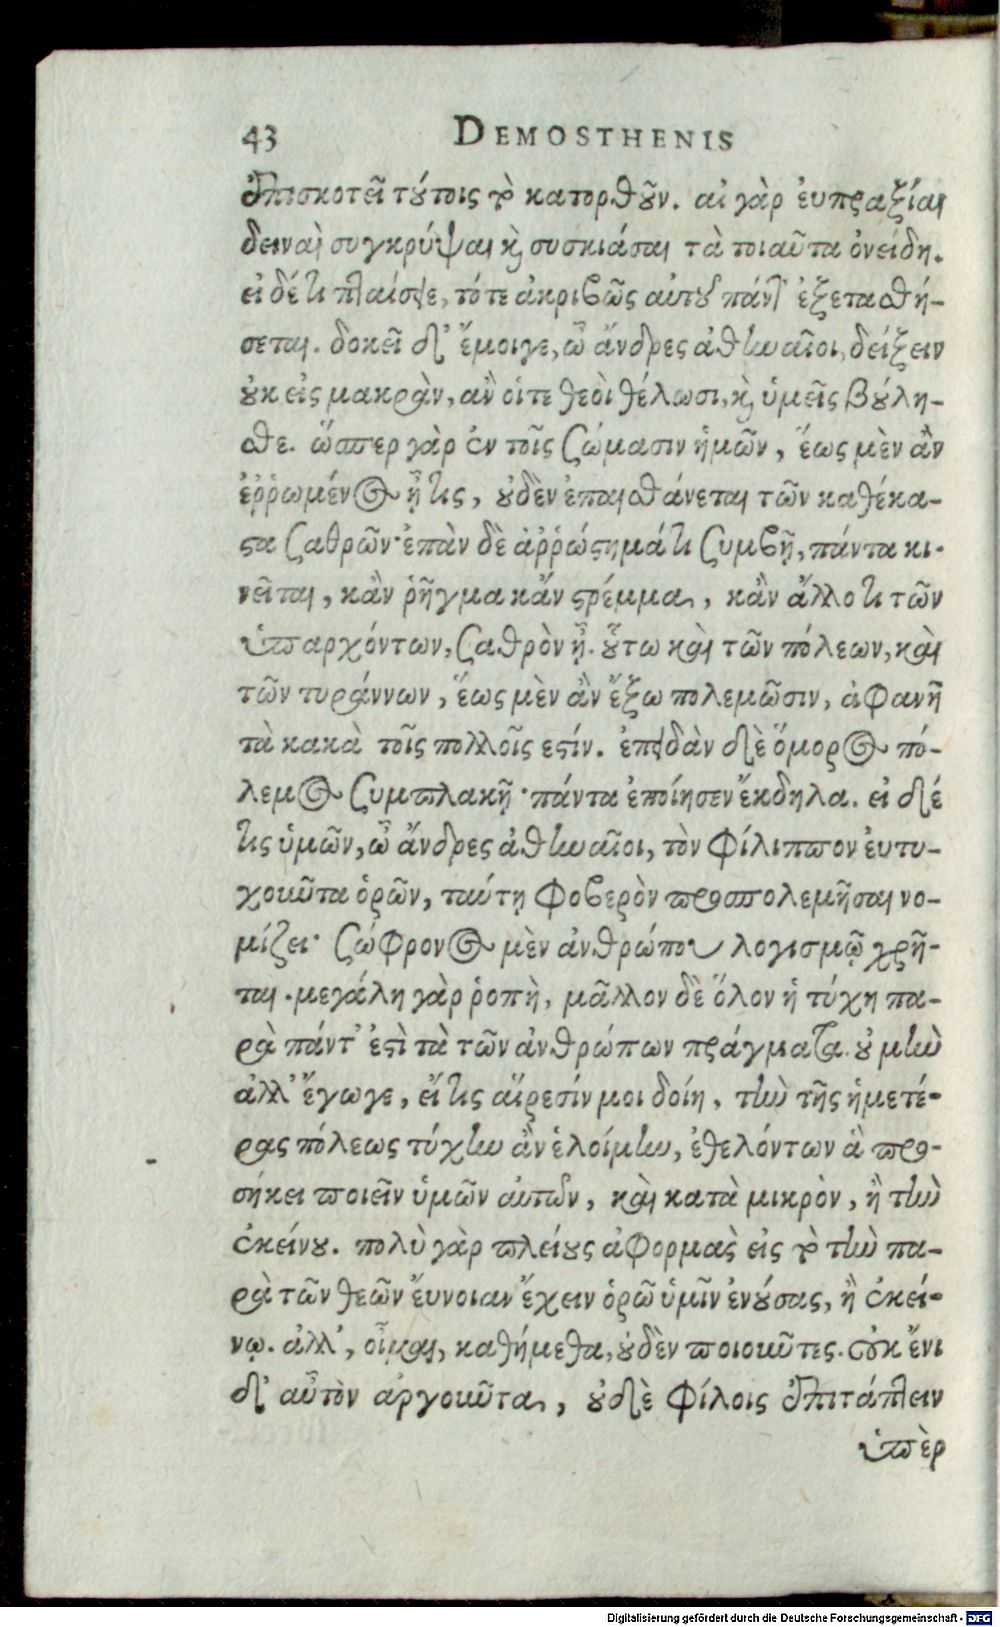 43 DEMOSTHENIS
ἐπισκοτεῖ τούτοις τὸ κατορθοῦν. αἱ γὰρ ἐυπραξίαι
δειναὶ συγκρύψαι καὶ συσκιάσαι τὰ τοιαῦτα ὀνείδη.
εἰ δέ τι πταίσειε, τότε ἀκριβῶς αὐτοῦ πάντ' ἐξετασθή-
σεται. δοκεῖ δ' ἔμοιγε, ὦ ἄνδρες ἀθηναῖοι, δείξειν
οὐκ εἰς μακρὰν, ἂν οἵ τε θεοὶ θέλωσι, καὶ ὑμεῖς βούλη-
σθε. ὥσπερ γὰρ ἐν τοῖς σώμασιν ἡμῶν, ἕως μὲν ἂν
ἐῤῥωμένος ᾖ τις, οὐδὲν ἐπαισθάνεται τῶν καθέκα-
στα σαθρῶν· ἐπὰν δὲ ἀῤῥώστημά τι συμβῇ, πάντα κι-
νεῖται, κἂν ῥῆγμα κἄν στρέμμα, κἂν ἄλλο τι τῶν
ὑπαρχόντων, σαθρὸν ᾖ. οὕτω καὶ τῶν πόλεων, καὶ
τῶν τυράννων, ἕως μὲν ἂν ἔξω πολεμῶσιν, ἀφανῆ
τὰ κακὰ τοῖς πολλοῖς εστίν. ἐπειδὰν δὲ ὅμορος πό-
λεμος συμπλακῇ· πάντα ἐποίησεν ἔκδηλα. εἰ δέ
τις ὑμῶν, ὦ ἄνδρες ἀθηναῖοι, τὸν Φίλιππον ἐυτυ-
χοῦντα ὁρῶν, ταύτῃ φοβερὸν προσπολεμῆσαι νο-
μίζει· σώφρονος μὲν ἀνθρώπου λογισμῷ χρῆ-
ται. μεγάλη γὰρ ῥοπὴ, μᾶλλον δὲ ὅλον ἡ τύχη πα-
ρὰ πάντ' ἐστὶ τὰ τῶν ἀνθρώπων πράγματα. οὐ μὴν
ἀλλ' ἔγωγε, εἴ τις αἵρεσίν μοι δοίη, τὴν τῆς ἡμετέ-
ρας πόλεως τύχην ἂν ἑλοίμην, ἐθελόντων ἃ προ-
σήκει ποιεῖν ὑμῶν αὐτῶν, καὶ κατὰ μικρὸν, ἢ τὴν
ἐκείνου. πολὺ γὰρ πλείους ἀφορμὰς εἰς τὸ τὴν πα-
ρὰ τῶν θεῶν ἔυνοιαν ἔχειν ὁρῶ ὑμῖν ἐνούσας, ἢ ἐκεί-
νῳ. ἀλλ', οἶμαι, καθήμεθα, οὐδὲν ποιοῦντες. οὐκ ἔνι
δ' αὐτὸν ἀργοῦντα, οὐδὲ φίλοις ἐπιτάττειν
ὑπὲρ
Digitalisierung gefördert durch die Deutsche Forschungsgemeinschaft - DFG